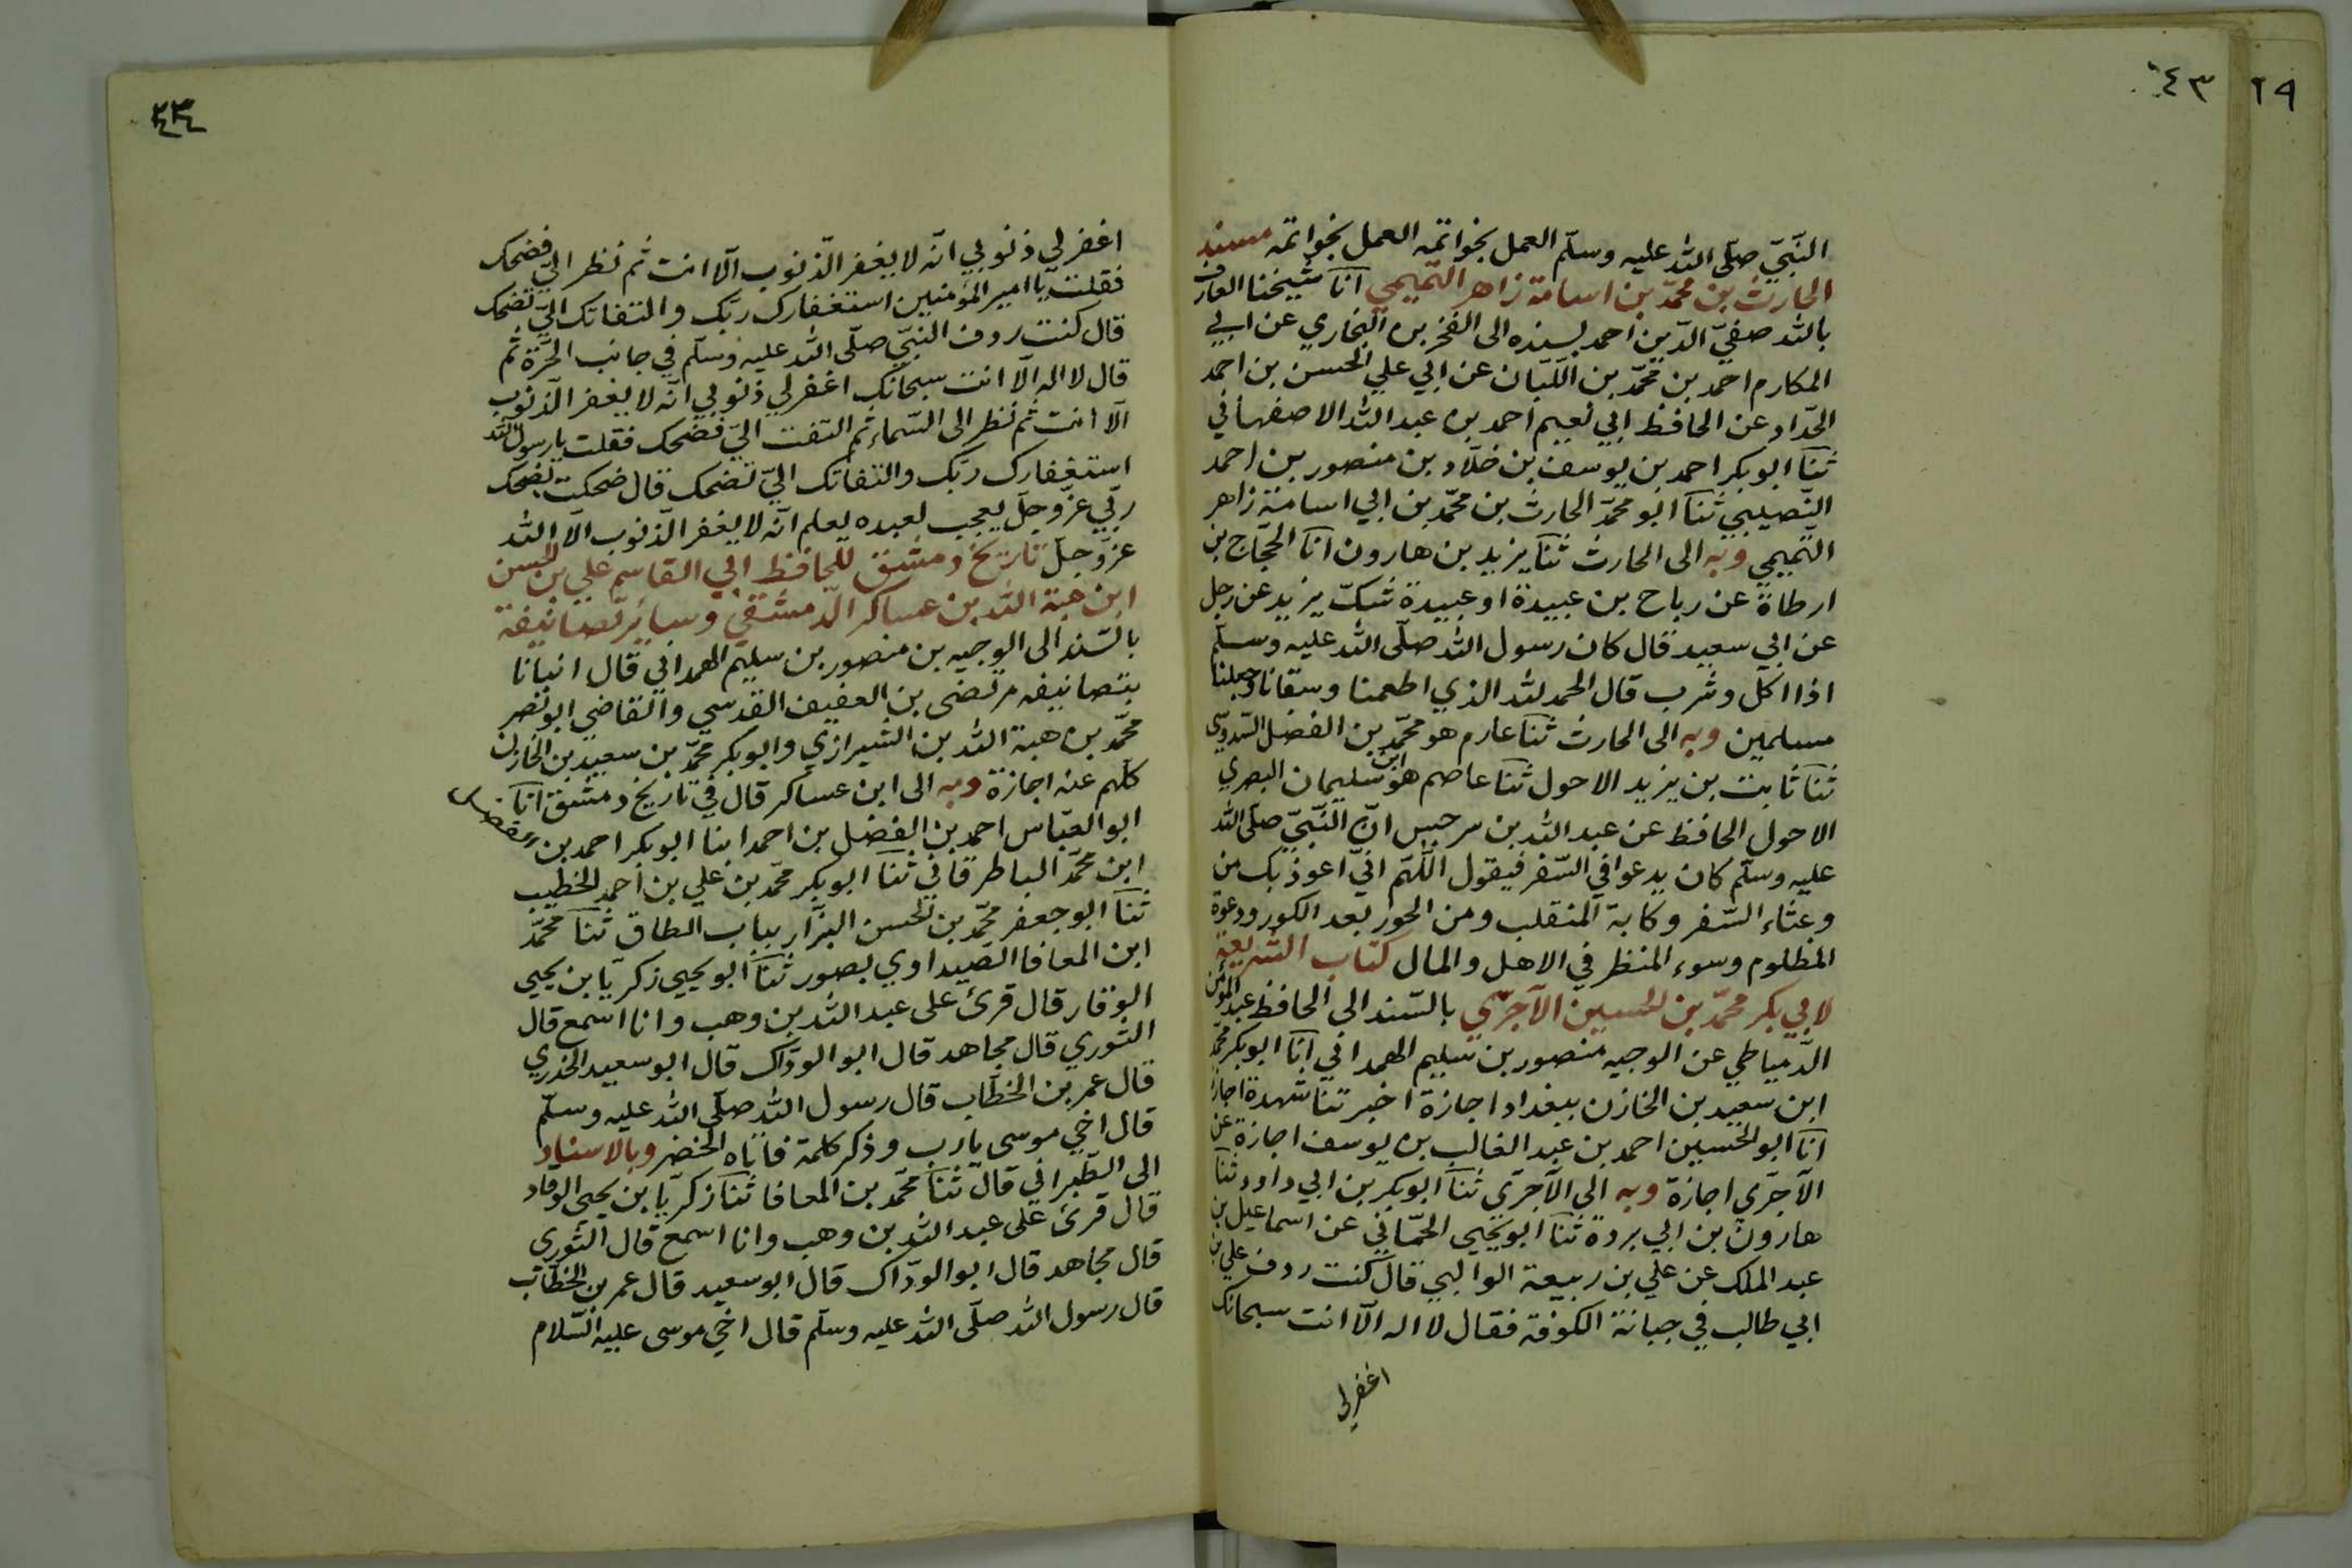 ٤٣
٢٩
النّبيّ صلّى الله عليه وسلّم العمل بخواتمه العمل بخواتمه مسند
الحارث بن محمّد بن اسامة زاهر التّميمي انا شيخنا العارف
بالله صفيّ الدّين احمد بسنده الى الفخر بن البخاري عن ابي
المكارم احمد بن محمّد بن اللّبّان عن ابي علي الحسن بن احمد
الحدّاد عن الحافظ ابي نعيم احمد بن عبد الله الاصفهاني
ثنا ابو بكر احمد بن يوسف بن خلّاد بن منصور بن احمد
النّصيبي ثنا ابو محمّد الحارث بن محمّد بن ابي اسامة زاهر
التميمي وبه الى الحارث ثنا يزيد بن هارون انا الحجّاج بن
ارطاة عن رباح بن عبيدة او عبيدة شكّ يزيد عن رجل
عن ابي سعيد قال كان رسول الله صلّى الله عليه وسلّم
اذا اكل وشرب قال الحمد لله الذي اطعمنا وسقانا وجعلنا
مسلمين وبه الى الحارث ثنا عارم هو محمّد بن الفضل السّدوسي
ثنا ثابت بن يزيد الاحول ثنا عاصم هو ابن سليمان البصري
الاحول الحافظ عن عبد الله بن سرجس انّ النّبيّ صلّى الله
عليه وسلّم كان يدعوا في السّفر فيقول اللّهمّ انّي اعوذ بك من
وعثاء السّفر وكابة المنقلب ومن الحور بعد الكور ودعوة
المظلوم وسوء المنظر في الاهل والمال كتاب الشّريعة
لابي بكر محمّد بن الحسين الآجرّي بالسّند الى الحافظ عبد المؤمن
الدّمياطي عن الوجيه منصور بن سليم الهمداني انا ابو بكر محمّد
ابن سعيد بن الخازن ببغداد اجازة اخبرتنا شهدة اجازة
انا ابو الحسين احمد بن عبد الغالب بن يوسف اجازة عن
الآجرّي اجازة وبه الى الآجرّي ثنا ابو بكر بن ابي داود ثنا
هارون بن ابي بردة ثنا ابو يحيى الحمّاني عن اسماعيل بن
عبد الملك عن علي بن ربيعة الوالبي قال كنت ردف علي بن
ابي طالب في جبانة الكوفة فقال لا اله الّا انت سبحانك
اغفر لي
اغفر لي ذنوبي انّه لا يغفر الذّنوب الّا انت ثم نظر اليّ فضحك
فقلت يا امير المؤمنين استغفارك ربّك والتفاتك اليّ تضحك
قال كنت ردف النبّي صلّى الله عليه وسلّم في جانب الحرّة ثم
قال لا اله الّا انت سبحانك اغفر لي ذنوبي انّه لا يغفر الذنوب
الّا انت ثم نظر الى السّماء ثم التفت اليّ فضحك فقلت يا رسول الله
استغفارك ربّك والتفاتك اليّ تضحك قال ضحكت لضحك
ربّي عزّ وجلّ يعجب لعبده يعلم انّه لا يغفر الذّنوب الّا الله
عزّ وجلّ تاريخ دمشق للحافظ ابي القاسم علي بن الحسن
ابن هبة الله بن عساكر الدّمشقي وسائر تصانيفه
بالسّند الى الوجيه بن منصور بن سليم الهمداني قال انبانا
بتصانيفه مرتضى بن العفيف القدسي والقاضي ابو نصر
محمّد بن هبة الله بن الشيرازي وابو بكر محمّد بن سعيد بن الخازن
كلّهم عنه اجازة وبه الى ابن عساكر قال في تاريخ دمشق انا
ابو العبّاس احمد بن الفضل بن احمد ابنا ابو بكر احمد بن
ابن محمّد الباطرقاني ثنا ابو بكر محمّد بن علي بن احمد الخطيب
ثنا ابو جعفر محمّد بن الحسن البزّار بباب الطاق ثنا محمّد
ابن المعافا الصّيداوي بصور ثنا ابو يحيى زكريّا بن يحيى
الوقار قال قرئ على عبد الله بن وهب وانا اسمع قال
الثوري قال مجاهد قال ابو الودّاك قال ابو سعيد الخدري
قال عمر بن الخطّاب قال رسول الله صلّى الله عليه وسلّم
قال اخي موسى يا رب وذكر كلمة فاتاه الخضر وبالاسناد
الى الطّبراني قال ثنا محمّد بن المعافا ثنا زكريّا بن يحيى الوقاد
قال قرئ على عبد الله بن وهب وانا اسمع قال الثوري
قال مجاهد قال ابو الودّاك قال ابو سعيد قال عمر بن الخطّاب
قال رسول الله صلّى الله عليه وسلّم قال اخي موسى عليه السّلام